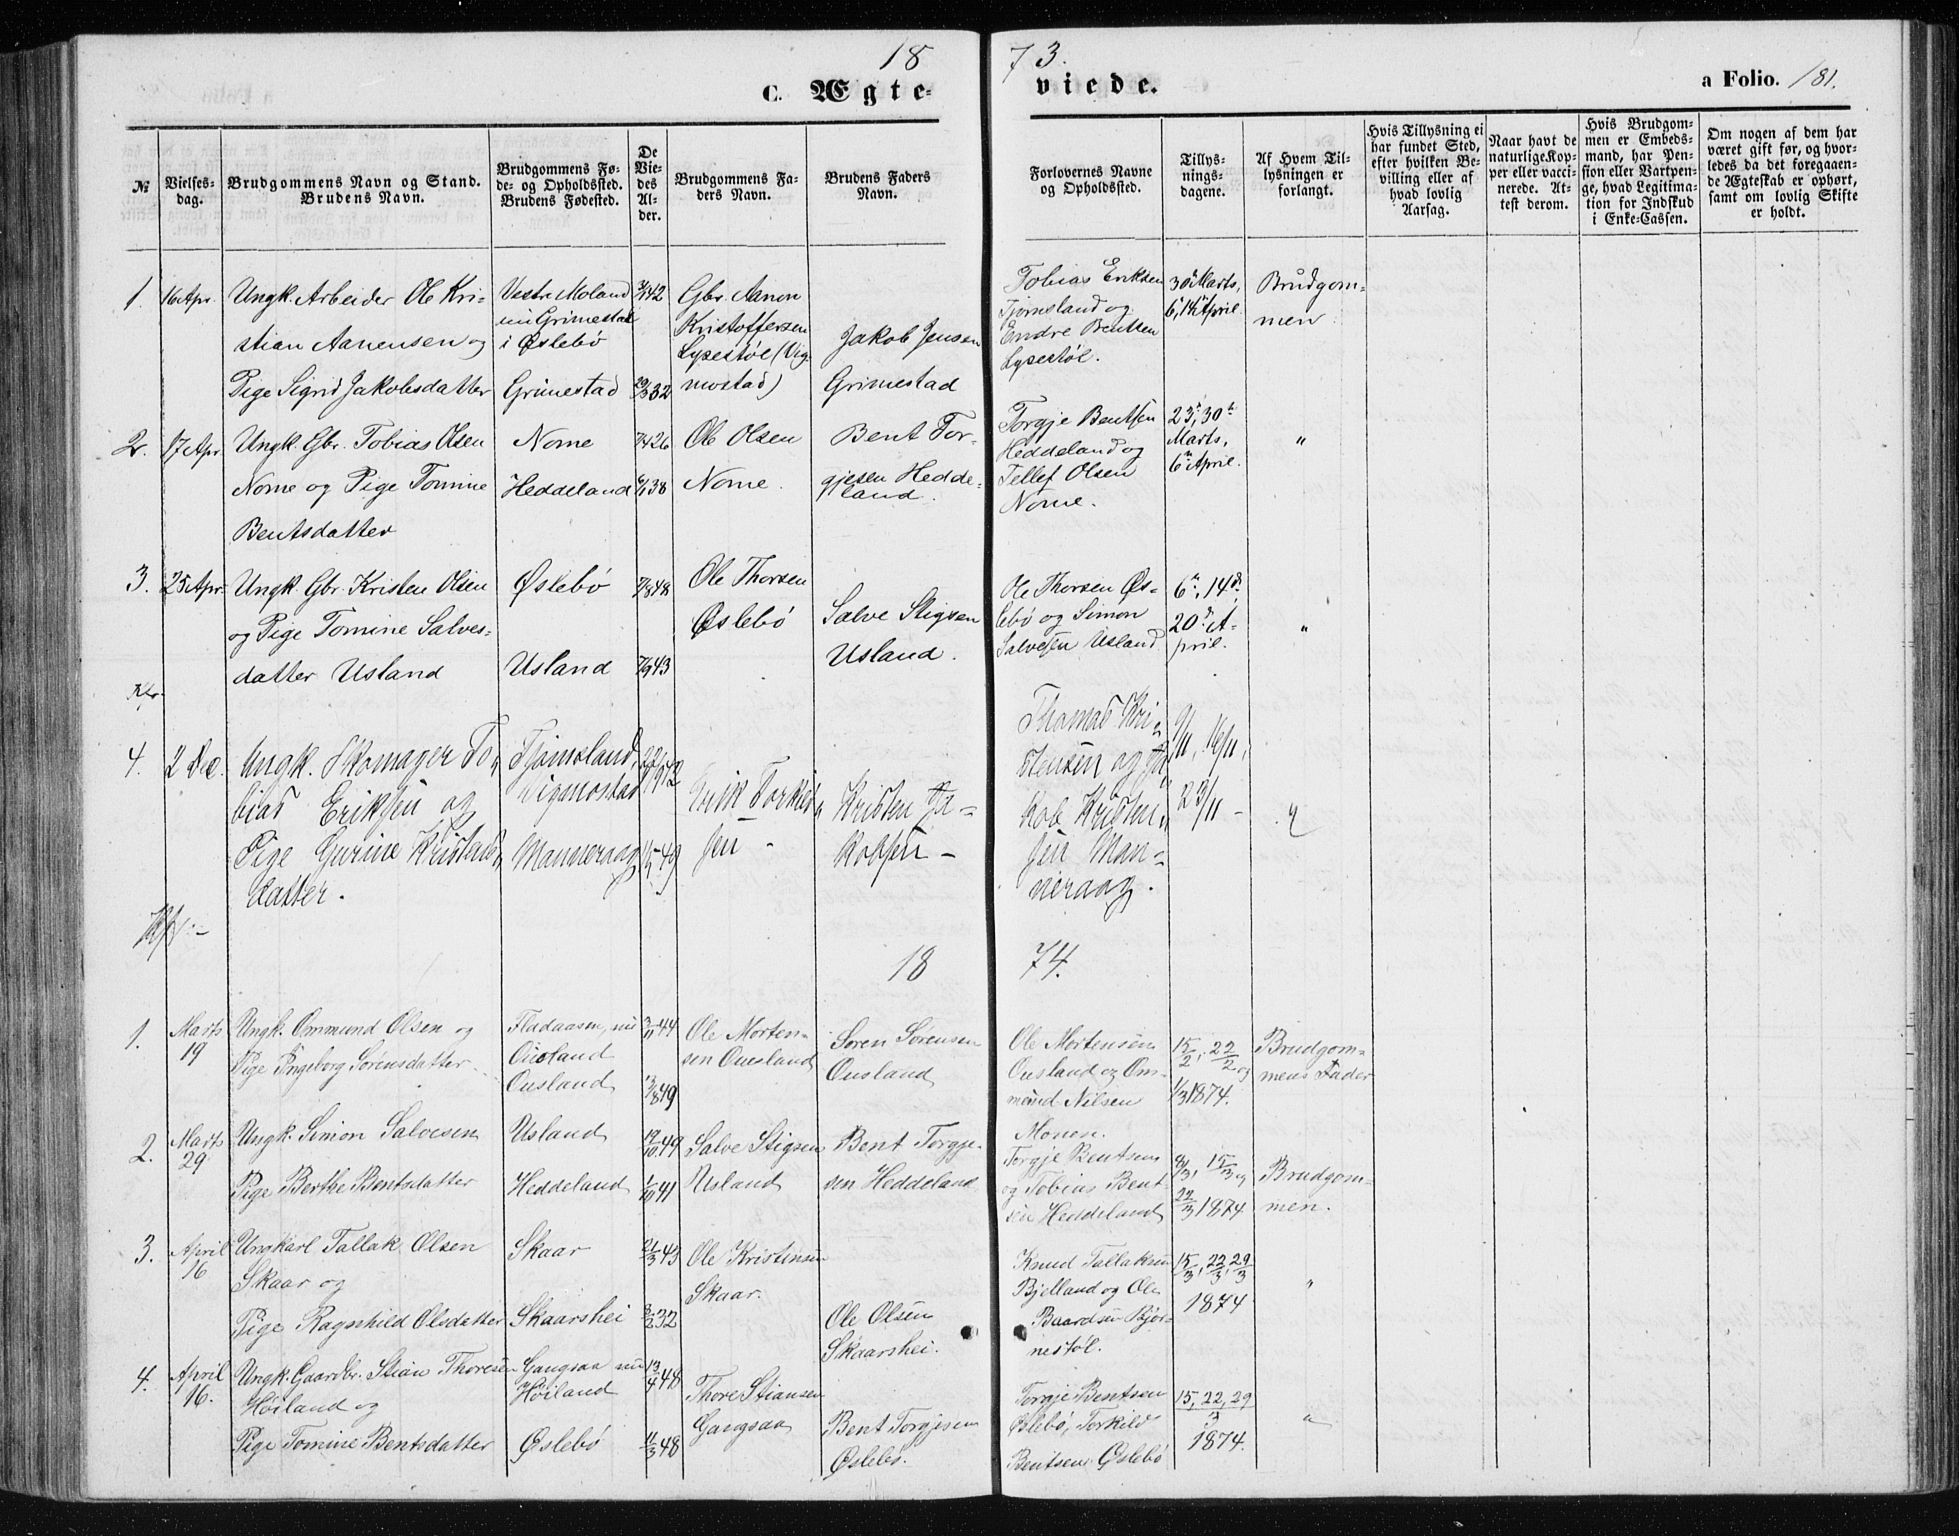 18
73.
C. Ægte-
viede.
a Folio. 181.
№
Vielses-
dag.
Brudgommens Navn og Stand.
Brudens Navn.
Brudgommens Fø-
de- og Opholdssted.
Brudens Fødested.
De
Vie-
des
Al-
der.
Brudgommens Fa-
ders Navn.
Brudens Faders
Navn.
Forlovernes Navne
og Opholdssted.
Tillys-
nings-
dagene.
Af Hvem Til-
lysningen er
forlangt.
Hvis Tillysning ei
har fundet Sted,
efter hvilken Be-
villing eller af
hvad lovlig
Aarsag.
Naar havt de
naturlige Kop-
per eller vacci-
nerede. At-
test derom.
Hvis Brudgom-
men er Embeds-
mand, har Pen-
sion eller Vartpen-
ge, hvad Legitima-
tion for Indskud
i Enke-Cassen.
Om nogen af dem har
været gift før, og hvor-
ledes da det foregaaen-
de Ægteskab er ophørt,
samt om lovlig Skifte
er holdt.
1.
16 Apr.
Ungk. Arbeider Ole Kri-
stian Aanensen og
Pige Sigrid Jakobsdatter
Vestre Moland
nu Grimestad
i Øslebø
Grimestad
42
32
Gbr. Aanon
Kristoffersen
Lysestøl (Vig-
mostad)
Jakob Jensen
Grimestad
Tobias Eriksen
Tjomsland og
Endre Bentsen
Lysestøl.
30te Marts,
6te, 14de April.
Brudgom-
men
2.
17 Apr.
Ungk. Gbr. Tobias Olsen
Nome og Pige Tomine
Bentsdatter
Nome
Heddeland
26
38
Ole Olsen
Nome.
Bent Tor-
gjesen Hedde-
land.
Torgje Bentsen
Heddeland og
Tellef Olsen
Nome.
23de, 30te
Marts,
6te April.
"
3.
25 Apr.
Ungk. Gbr. Kristen Olsen
og Pige Tomine Salves-
datter Usland
Øslebø
Usland
7/8 48
7/9 43
Ole Thorsen
Øslebø
Salve Stigsen
Usland.
Ole Thorsen Øs-
lebø og Simon
Salvesen Usland
6te, 14de,
20de A-
pril.
"
4.
2 Dec.
Ungk. Skomager To-
bias Eriksen og
Pige Gurine Kristens-
datter.
Tjomsland,
Vigmostad
Manneraag
42
49
Erik Torkild-
sen -
Kristen Ja-
kobsen -
Thomas Kri-
stensen og Ja-
kob Kristen-
sen Man-
neraag.
9/11, 16/11,
23/11 -
18
74.
1.
Marts
19
Ungk. Ommund Olsen og
Pige Ingeborg Sørensdatter.
Fladaasen, nu
Ousland
Ousland
3/11 44
49
Ole Morten-
sen Ousland
Søren Sørensen
Ousland
Ole Mortensen
Ousland og Om-
mund Nilsen
Monen.
15/2, 22/2 og
1/3 1874.
Brudgom-
mens Fader
2.
Marts
29
Ungk. Simon Salvesen
Pige Berthe Bentsdatter
Usland
Heddeland
19/10 49
1/10 41
Salve Stigsen
Usland
Bent Torgje-
sen Heddeland
Torgje Bentsen
og Tobias Bent-
sen Heddeland
8/3, 15/3 og
22/3 1874
Brudgom-
men.
3.
April
16
Ungkarl Tallak Olsen
Skaar og
Pige Ragnhild Olsdatter
Skaar
Skaarshei
21/3 43
8/2 32
Ole Kristensen
Skaar.
Ole Olsen
Skaarshei.
Knud Tallaksen
Bjelland og Ole
Baardsen Bjør-
nestøl.
15/3, 22/3, 29/3
1874
"
4.
April
16.
Ungk. Gaardbr. Stian Thoresen
Høiland og
Pige Tomine Bentsdatter
Gangsaa nu
Høiland
Øslebø
13/4 48
11/3 48
Thore Stiansen
Gangsaa
Bent Torgjesen
Øslebø.
Torgje Bentsen
Øslebø, Torkild
Bentsen Øslebø
15, 22, 29
3
1874.
"